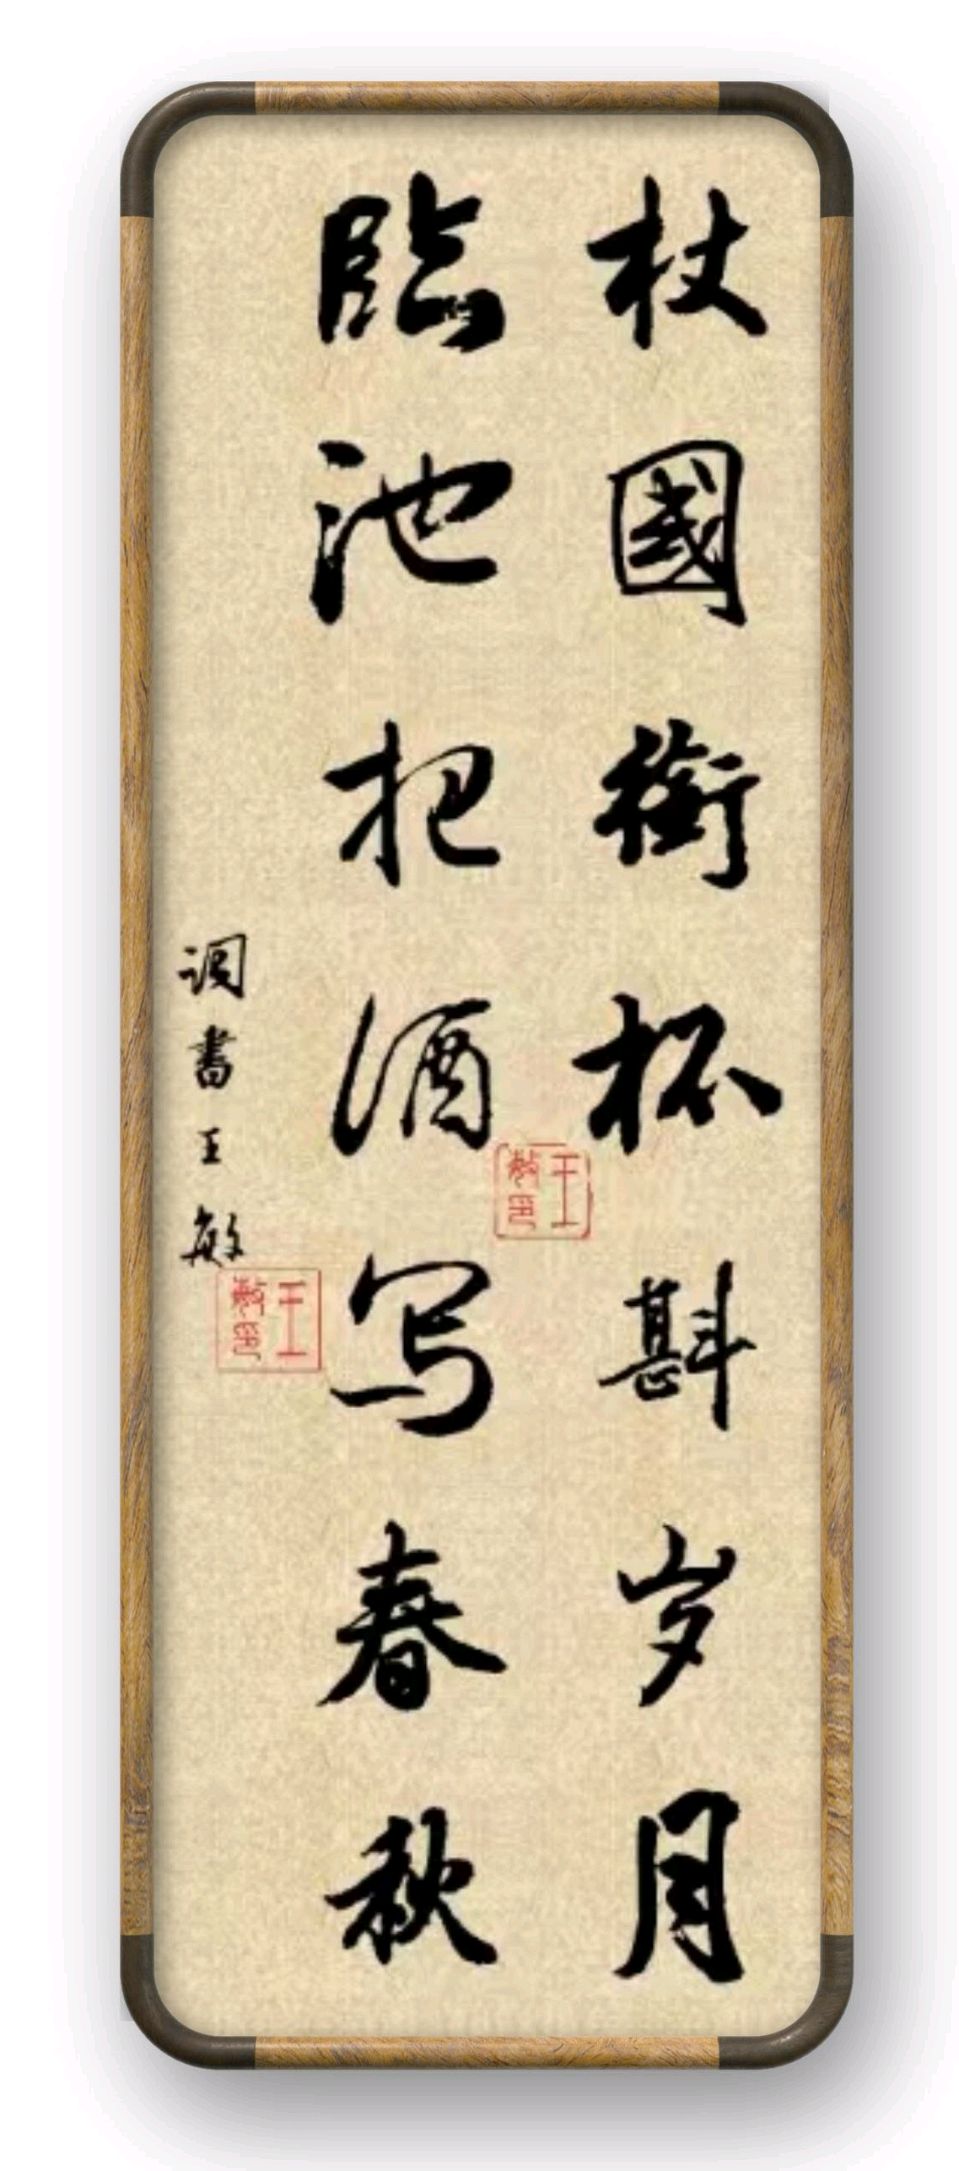 杖國衔杯斟岁月
臨池把酒写春秋
调書王敏
王敏印
王敏印